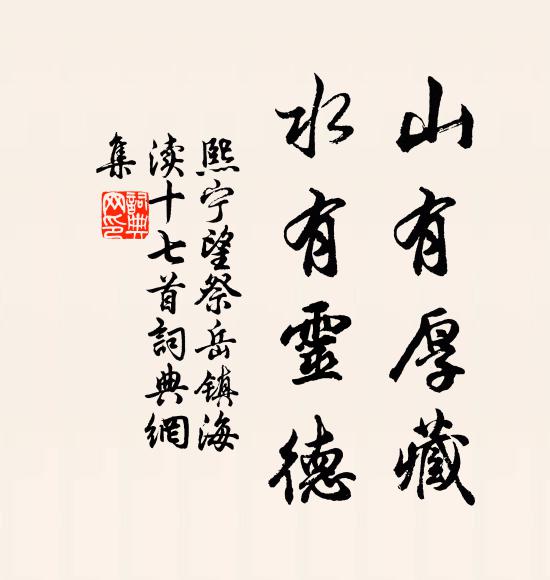 山有厚藏
水有靈德
熙宁望祭岳镇海
渎十七首詞典網
集
詞典網印